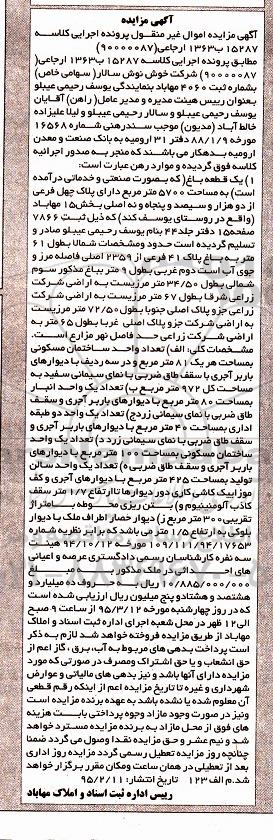 آگهی مزایده
آگهی مزایده اموال غیر منقول پرونده اجرایی کلاسه
۱۵۲۸۷ ب۱۳۶۳ ارجاعی(۹۰۰۰۰۰۸۷)
مطابق پرونده اجرایی کلاسه ۱۵۲۸۷ ب۱۳۶۳ ارجاعی(
۹۰۰۰۰۰۸۷) شرکت خوش نوش سالار( سهامی خاص)
بشماره ثبت ۴۰۶۰ مهاباد بنمایندگی یوسف رحیمی عیبلو
بعنوان رییس هیئت مدیره و مدیر عامل( راهن) آقایان
یوسف رحیمی عیبلو و سالار رحیمی عیبلو و لیلا علیزاده
خالط آباد (مدیون) موجب سندرهنی شماره ۱۶۵۶۸
مورخه ۸۸/۱/۹ دفتر ۳۱ ارومیه به بانک صنعت و معدن
ارومیه بدهکار می باشند که منجر به صدور اجرائیه
کلاسه فوق گردیده و موارد رهن عبارت است:
۱) یک قطعه باغ( که بصورت صنعتی و خدماتی درآمده
است) به مساحت ۵۷۰۰ متر مربع دارای پلاک چهل فرعی
از دو هزار و سیصد و پنجاه و نه اصلی بخش۱۵ مهاباد
(واقع در روستای یوسف کند) که ذیل ثبت ۷۸۶۶
صفحه۱۵ دفتر جلد۴۴ بنام یوسف رحیمی عیبلو صادر و
تسلیم گردیده است حدود ومشخصات شمالا بطول ۶۱
متر به باغ پلاک ۴۱ فرعی از ۲۳۵۹ اصلی فاصله مرز و
جوی آب است دوم غربی بطول ۹ متر بباغ مذکور سوم
شمالی بطول ۳۴/۵۰ متر مرزیست به اراضی شرکت
زراعی شرقا بطول ۶۷ متر مرزیست به اراضی شرکت
زراعی جزو پلاک اصلی جنوبا بطول ۷۲/۵۰ متر مرزیست
به اراضی شرکت جزو پلاک اصلی غربا بطول ۶۵ متر به
اراضی شرکت زراعی حد فاصل نهر مزارع است.
مشخصات کلی: الف) تعداد واحد ساختمان مسکونی
بمساحت هر یک ۸۱ متر مربع و در سه ردیف با دیوارهای
باربر آجری با سقف طاق ضربی با نمای سیمانی سفید به
مساحت کل ۹۷۲ متر مربع ب) تعداد یک واحد انبار
بمساحت ۸۰ متر مربع با دیوارهای باربر آجری و سقف
طاق ضربی با نمای سیمانی زرد ج) تعداد یک واحد دو طبقه
اداری بمساحت ۴۰ متر مربع با دیوارهای باربر آجری و
سقف طاق ضربی با نمای سیمانی زرد د) تعداد یک واحد
ساختمان مسکونی بمساحت ۱۰۰ متر مربع با دیوارهای
باربر آجری و سقف طاق ضربی ه) تعداد یک واحد سالن
تولید بمساحت ۴۲۵ متر مربع با دیوارهای آجری و کف
موزاییک کاشی کاری دور دیوارها تا ارتفاع ۱/۷متر سقف
کاذب آلومینیوم و) بتن ریزی محوطه بامتراز
تقریبی۳۰۰ متر مربع ز) دیوار حصار اطراف ملک با دیوار
بلوکی به ارتفاع ۱/۵ متر می باشد که برابر نظریه شماره
۱۰۹/۱۱۱/۹۴/۱۷۶۵۳ مورخه ۹۴/۱۰/۱۲ هیئت
سه نفره کارشناسان رسمی دادگستری عرصه و اعیانی
های احداثی در ملک مذکور به مبلغ
۱۰/۸۸۵/۰۰۰/۰۰۰ ریال بحروف ده میلیارد و
هشتصد و هشتادو پنج میلیون ریال ارزیابی شده است
که در روز چهارشنبه مورخه ۹۵/۳/۱۲ از ساعت ۹ صبح
الی۱۲ ظهر در محل شعبه اجرای اداره ثبت اسناد و املاک
مهاباد از طریق مزایده فروخته خواهد شد لازم به ذکر
است پرداخت بدهی های مربوط به آب، برق، گاز اعم از
حق انشعاب و یا حق اشتراک ومصرف در صورتی که مورد
مزایده دارای آنها باشد و نیز بدهی های مالیاتی و عوارض
شهرداری و غیره تا تاریخ مزایده اعم از اینکه رقم قطعی
آن معلوم شده یا نشده باشد به عهده برنده مزایده است
ونیز در صورت وجود مازاد وجوه پرداختی بابت هزینه
های فوق از محل مازاد به برنده مزایده مسترد خواهد
شد و نیم عشر و حق مزایده نقدا وصول می گردد ضمنا
چنانچه روز مزایده تعطیل رسمی گردد مزایده روز اداری
بعد از تعطیلی در همان ساعت ومکان مقرر برگزار خواهد
شد.م الف ۱۲۳ تاریخ انتشار: ۹۵/۲/۱۱
رییس اداره ثبت اسناد و املاک مهاباد